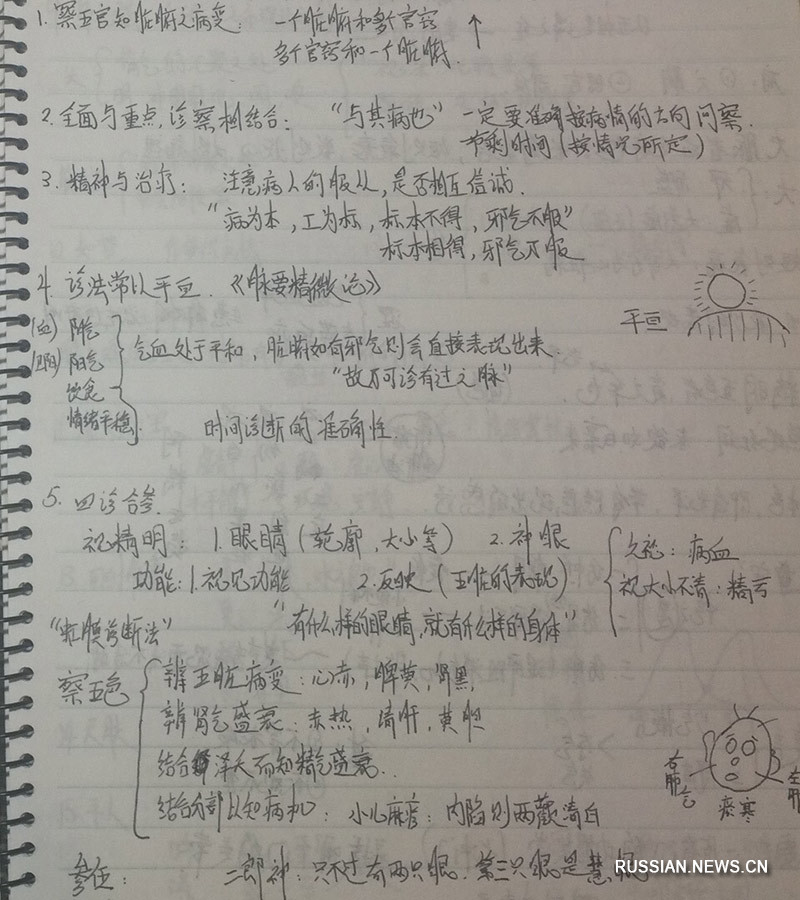 1. 察五官知脏腑之病变. 一个脏腑和多个官窍 ↑
多个官窍和一个脏腑.
2. 全面与重点,诊察相结合: “与其病也” 一定要准确按病情的方向问察.
节剩时间(按情况所定)
3. 精神与治疗: 注意病人的服从,是否相互信诚.
“病为本,工为标,标本不得,邪气不服”
标本相得,邪气服
4. 诊法常以平旦.《脉要精微论》
平旦
阴气
阳气
饮食
情绪平稳
气血处于平和,脏腑如有邪气则会直接表现出来.
“故乃可诊有过之脉”
时间诊断的准确性.
5. 四诊合参.
视精明: 1.眼睛(轮廓,大小等) 2.神眼
功能:1.视见功能 2.反映(五脏的表现)
: 病血
视大小不清:精亏
“有什么样的眼睛,就有什么样的身体”
“虹膜诊断法”
察五色
辨五脏病变:心赤,脾黄,肾黑,
辨肾气盛衰:赤热,清肝,黄胆
结合泽夭而知精气盛衰..
结合分部以知病机: 小儿麻疹:内陷则两颧清白
右肺气
左肝
瘀寒
参住: 二郎神:只不过有两只眼.第三只眼是慧眼
RUSSIAN.NEWS.CN